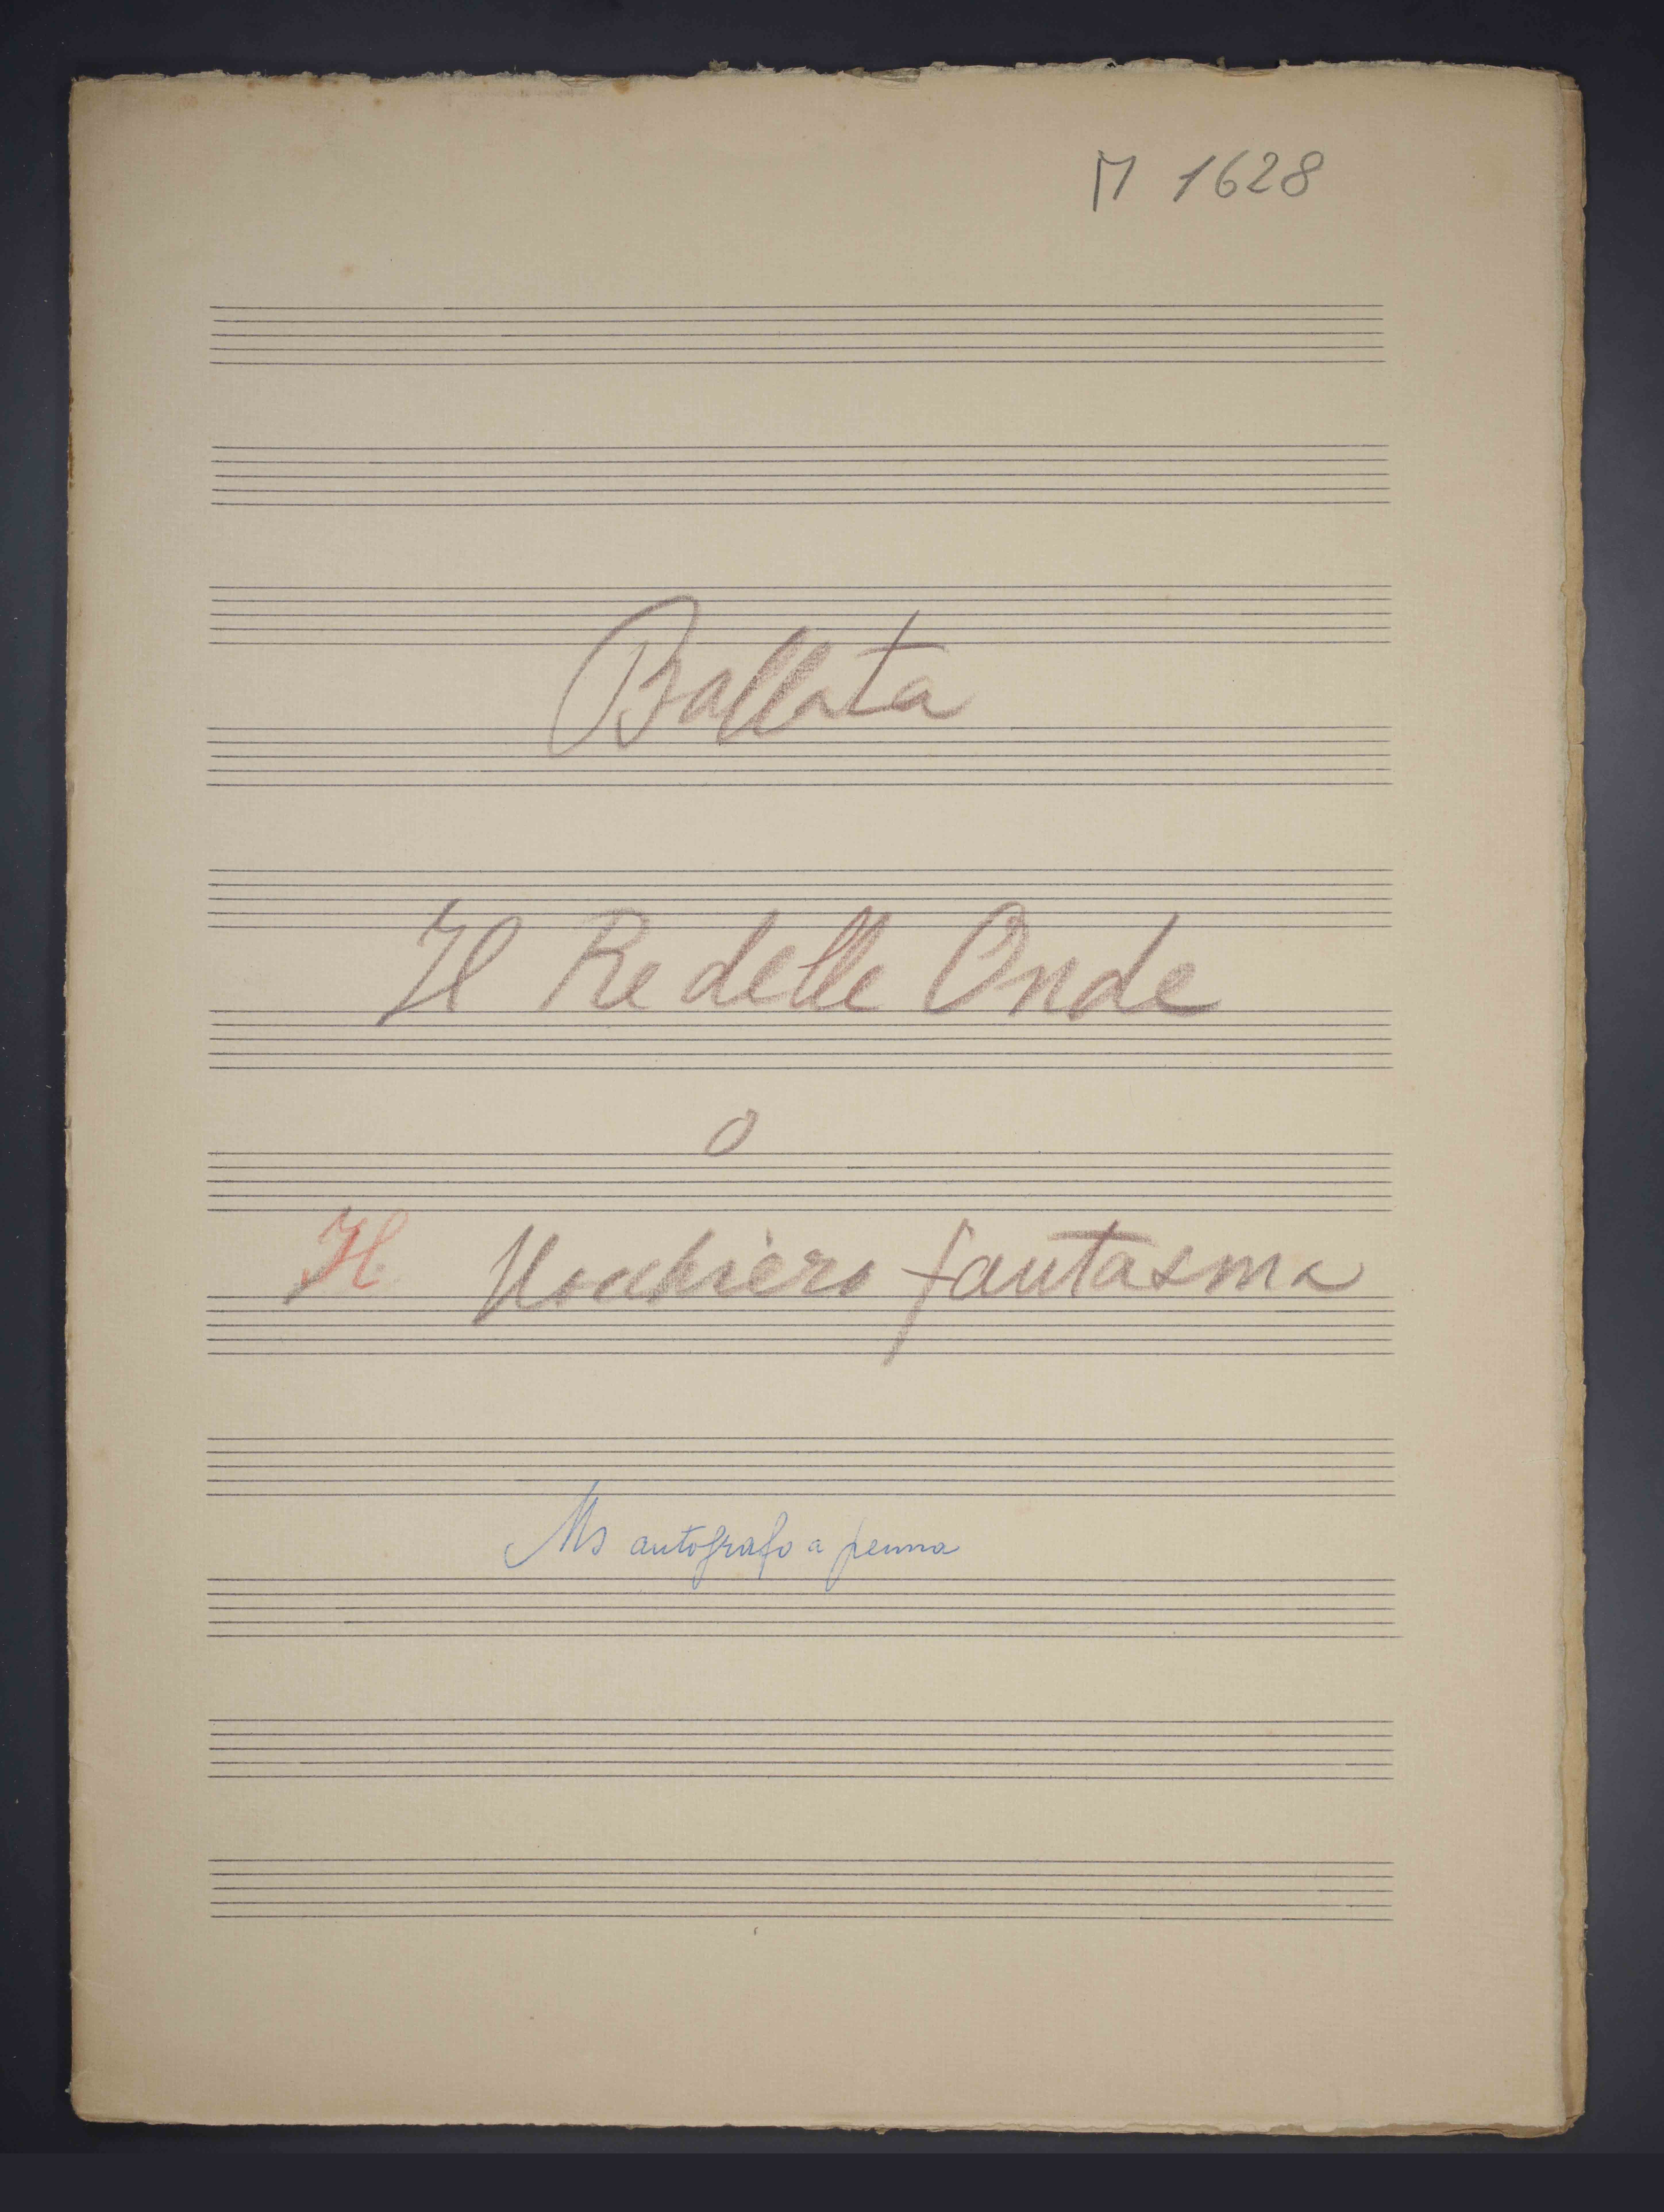 M 1628
Ballata
Il Re delle Onde
o
Il Nocchiero fantasma
Ms autografo a penna